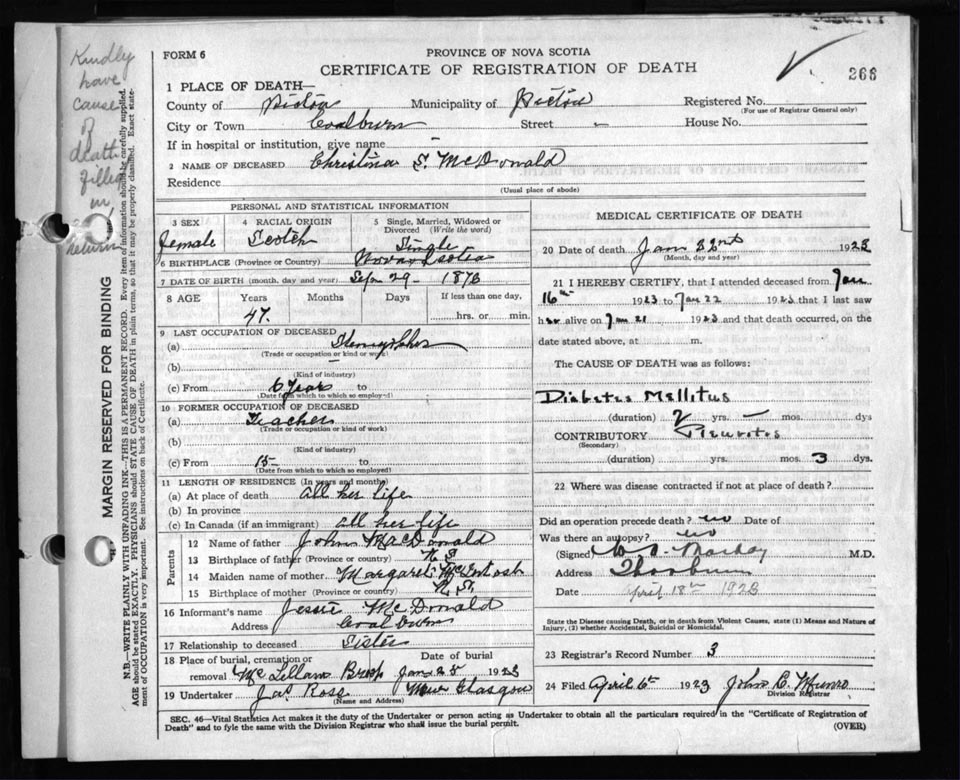 Kindly
have
cause
of
death
filled
in
&
return
MARGIN RESERVED FOR BINDING
N.B.—WRITE PLAINLY WITH UNFADING INK—THIS IS A PERMANENT RECORD. Every item of information should be carefully supplied.
AGE should be stated EXACTLY. PHYSICIANS should STATE CAUSE OF DEATH in plain terms, so that it may be properly classified. Exact state-
ment of OCCUPATION is very important. See instructions on back of Certificate.
FORM 6
PROVINCE OF NOVA SCOTIA
CERTIFICATE OF REGISTRATION OF DEATH
268
1 PLACE OF DEATH—
County of Pictou Municipality of Pictou Registered No.
(For use of Registrar General only)
City or Town Coalburn Street - House No.
If in hospital or institution, give name -
2 NAME OF DECEASED Christina S. McDonald
Residence
(Usual place of abode)
PERSONAL AND STATISTICAL INFORMATION
3 SEX Female
4 RACIAL ORIGIN Scotch
5 Single, Married, Widowed or
Divorced (Write the word)
Single
6 BIRTHPLACE (Province or Country) Nova Scotia
7 DATE OF BIRTH (month, day and year) Sep 29 - 1876
8 AGE Years Months Days If less than one day,
47. hrs. or min.
9 LAST OCCUPATION OF DECEASED
(a)
(Trade or occupation or kind of work)
(b) -
(Kind of industry)
(c) From 6 Years to
(Date from which to which so employed)
10 FORMER OCCUPATION OF DECEASED
(a) Teacher
(Trade or occupation or kind of work)
(b)
(Kind of industry)
(c) From 15- to
(Date from which to which so employed)
11 LENGTH OF RESIDENCE (In years and months)
(a) At place of death all her life
(b) In province "
(c) In Canada (if an immigrant) all her life
Parents
12 Name of father John MacDonald
13 Birthplace of father (Province or country) N.S
14 Maiden name of mother Margaret McIntosh
15 Birthplace of mother (Province or country) N.S.
16 Informant's name Jessie McDonald
Address Coal Burn
17 Relationship to deceased Sister
18 Place of burial, cremation or Date of burial
removal McLellans Brook Jan 25 1923
19 Undertaker Jas Ross New Glasgow
(Name and Address)
MEDICAL CERTIFICATE OF DEATH
20 Date of death Jan 22nd 1923
(Month, day and year)
21 I HEREBY CERTIFY, that I attended deceased from Jan
16th 1923 to Jan 22 1923 that I last saw
her alive on Jan 21 1923 and that death occurred, on the
date stated above, at m.
The CAUSE OF DEATH was as follows:
Diabetes Mellitus
(duration) 2 yrs. - mos. dys
CONTRIBUTORY
(Secondary)
(duration) yrs. mos. 3 dys.
22 Where was disease contracted if not at place of death?
Did an operation precede death? no Date of
Was there an autopsy? no
(Signed) Mackay M.D.
Address Thorburn
Date April 18th 1923
State the Disease causing Death, or in death from Violent Causes, state (1) Means and Nature of
Injury, (2) whether Accidental, Suicidal or Homicidal.
23 Registrar's Record Number 3
24 Filed April 6th 1923 John C. Munro
Division Registrar
SEC. 46—Vital Statistics Act makes it the duty of the Undertaker or person acting as Undertaker to obtain all the particulars required in the "Certificate of Registration of
Death" and to fyle the same with the Division Registrar who shall issue the burial permit.
(OVER)